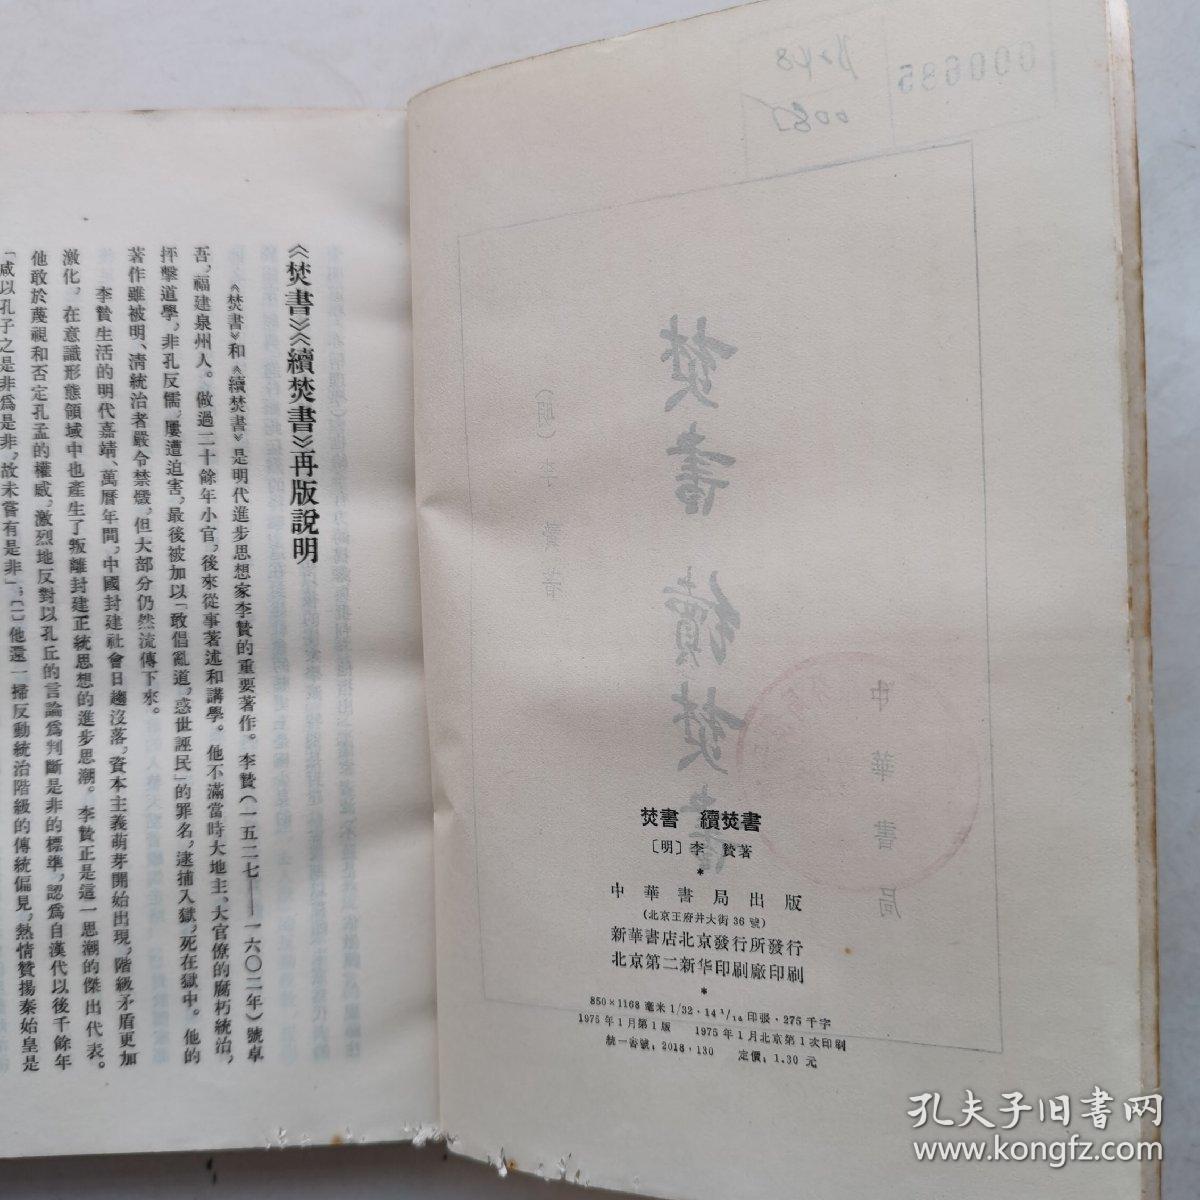 焚書 續焚書
〔明〕李 贄著
*
中華書局出版
(北京王府井大街 36 號)
新華書店北京發行所發行
北京第二新华印刷廠印刷
*
850×1168 毫米 1/32·14 1/16 印張·275 千字
1975 年 1 月第 1 版 1975 年 1 月北京第 1 次印刷
統一書號：2018·130 定價：1.30 元
《焚書》《續焚書》再版說明
《焚書》和《續焚書》是明代進步思想家李贄的重要著作。李贄（一五二七——一六〇二年）號卓
吾，福建泉州人。做過二十餘年小官，後來從事著述和講學。他不滿當時大地主、大官僚的腐朽統治，
抨擊道學，非孔反儒，屢遭迫害，最後被加以「敢倡亂道，惑世誣民」的罪名，逮捕入獄，死在獄中。他的
著作雖被明、清統治者嚴令禁燬，但大部分仍然流傳下來。
李贄生活的明代嘉靖、萬曆年間，中國封建社會日趨沒落，資本主義萌芽開始出現，階級矛盾更加
激化，在意識形態領域中也產生了叛離封建正統思想的進步思潮。李贄正是這一思潮的傑出代表。
他敢於蔑視和否定孔孟的權威，激烈地反對以孔丘的言論爲判斷是非的標準，認爲自漢代以後千餘年
「咸以孔子之是非爲是非，故未嘗有是非」；〔一〕他還一掃反動統治階級的傳統偏見，熱情贊揚秦始皇是
000685
焚書 續焚書
〔明〕李 贄著
中華書局
孔夫子旧书网
www.kongfz.com